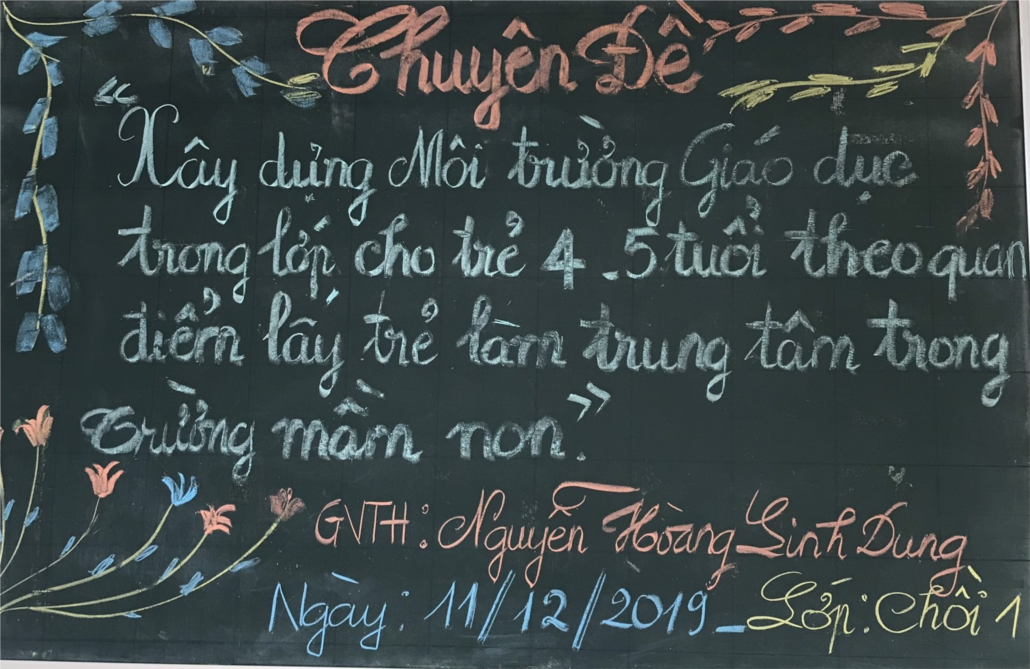 Chuyên Đề
“Xây dựng Môi trường Giáo dục
trong lớp cho trẻ 4-5 tuổi theo quan
điểm lấy trẻ làm trung tâm trong
trường mầm non.”
GVTH: Nguyễn Hoàng Linh Dung
Ngày: 11/12/2019_Lớp: Chồi 1